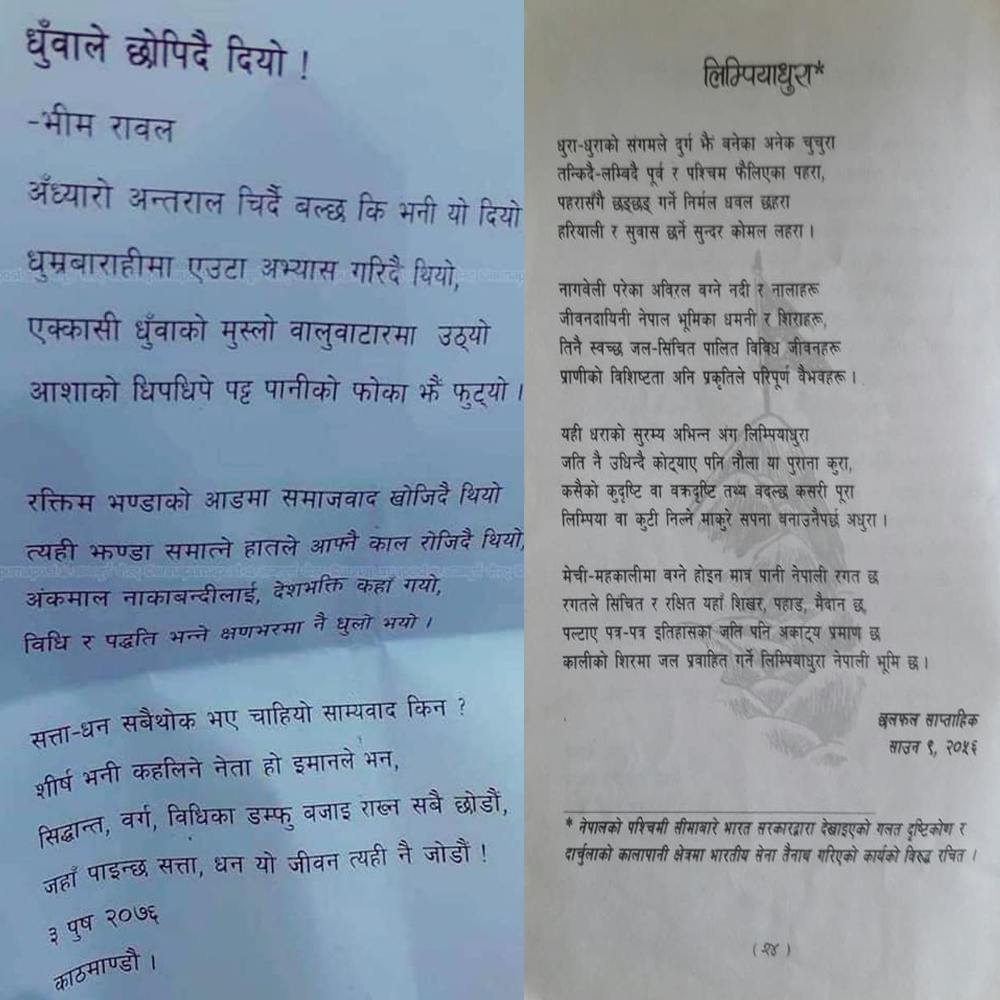 धुँवाले छोपिदै दियो !
-भीम रावल
अँध्यारो अन्तराल चिर्दै बल्छ कि भनी यो दियो
धुम्रबाराहीमा एउटा अभ्यास गरिदै थियो,
एक्कासी धुँवाको मुस्लो वालुवाटारमा उठ्यो
आशाको धिपधिपे पट्ट पानीको फोका झैं फुट्यो ।
रक्तिम झण्डाको आडमा समाजवाद खोजिदै थियो
त्यही झण्डा समात्ने हातले आफ्नै काल रोजिदै थियो,
अंकमाल नाकाबन्दीलाई, देशभक्ति कहाँ गयो,
विधि र पद्धति भन्ने क्षणभरमा नै धुलो भयो ।
सत्ता-धन सबैथोक भए चाहियो साम्यवाद किन ?
शीर्ष भनी कहलिने नेता हो इमानले भन,
सिद्धान्त, वर्ग, विधिका डम्फु बजाइ राख्न सबै छोडौं,
जहाँ पाइन्छ सत्ता, धन यो जीवन त्यही नै जोडौं !
३ पुष २०७६
काठमाण्डौ ।
लिम्पियाधुरा*
धुरा-धुराको संगमले दुर्ग झैं बनेका अनेक चुचुरा
तन्किदै-लम्बिदै पूर्व र पश्चिम फैलिएका पहरा,
पहरासँगै छड्छड् गर्ने निर्मल धवल छहरा
हरियाली र सुवास छर्ने सुन्दर कोमल लहरा ।
नागवेली परेका अविरल बग्ने नदी र नालाहरू
जीवनदायिनी नेपाल भूमिका धमनी र शिराहरू,
तिनै स्वच्छ जल-सिंचित पालित विविध जीवनहरू
प्राणीको विशिष्टता अनि प्रकृतिले परिपूर्ण वैभवहरू ।
यही धराको सुरम्य अभिन्न अंग लिम्पियाधुरा
जति नै उधिन्दै कोट्याए पनि नौला या पुराना कुरा,
कसैको कुदृष्टि वा वक्रदृष्टि तथ्य बदल्छ कसरी पूरा
लिम्पिया वा कुटी निल्ने माकुरे सपना बनाउनैपर्छ अधुरा ।
मेची-महकालीमा बग्ने होइन मात्र पानी नेपाली रगत छ
रगतले सिंचित र रक्षित यहाँ शिखर, पहाड, मैदान छ,
पल्टाए पत्र-पत्र इतिहासका जति पनि अकाट्य प्रमाण छ
कालीको शिरमा जल प्रवाहित गर्ने लिम्पियाधुरा नेपाली भूमि छ ।
छलफल साप्ताहिक
साउन ९, २०५६
* नेपालको पश्चिमी सीमाबारे भारत सरकारद्वारा देखाइएको गलत दृष्टिकोण र
दार्चुलाको कालापानी क्षेत्रमा भारतीय सेना तैनाथ गरिएको कार्यको विरुद्ध रचित ।
(२४)